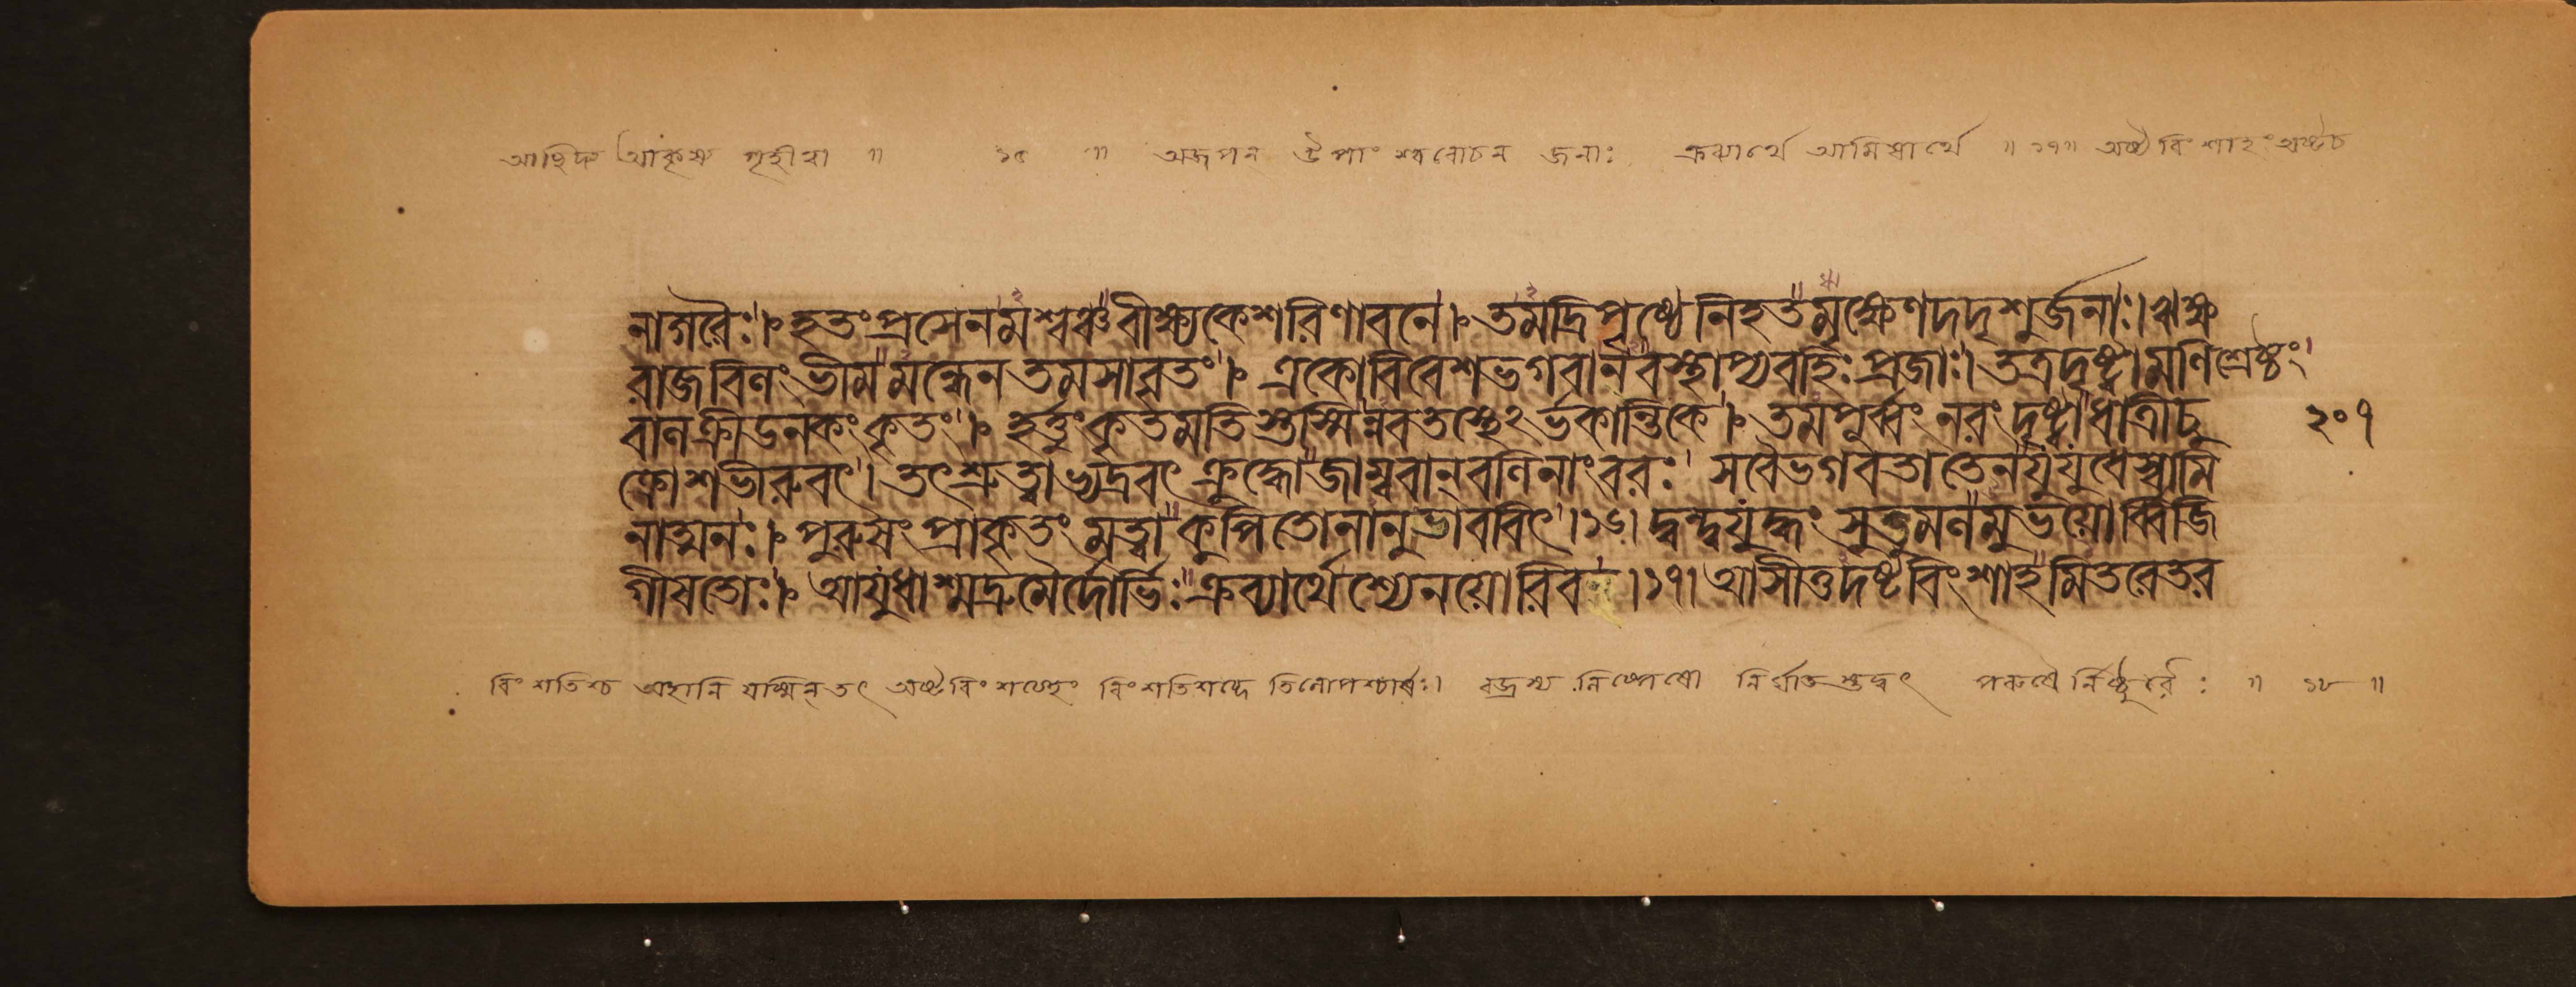 নাগরৈঃ। হতংপ্রসেনমশ্বঞ্চবীক্ষ্যকেশরিণাবনে। তমদ্রিপৃষ্ঠেনিহতমৃক্ষেণদদৃশুর্জনাঃ। ঋক্ষ
রাজবিলংভীমমন্ধেনতমসাবৃতং। একোবিবেশভগবানবস্থাপ্যবহিঃপ্রজাঃ। তত্রদৃষ্ট্বামণিশ্রেষ্ঠং
বালক্রীডনকংকৃতং। হর্ত্তুংকৃতমতিস্তস্মিন্নবতস্থেঽর্ভকান্তিকে। তমপূর্ব্বংনরংদৃষ্ট্বাধাত্রীচু ২০৭
ক্রোশভীরুবৎ। তৎশ্রুত্বাভ্যদ্রবৎক্রুদ্ধোজাম্ববান্‌বলিনাংবরঃ সবৈভগবতাতেনযুযুধেস্বামি
নাত্মনঃ। পুরুষংপ্রাকৃতংমত্বাকুপিতোনানুভাববিৎ।১৬। দ্বন্দ্বযুদ্ধংসুতুমুলমুভয়োর্ব্বিজি
গীষতোঃ। আযুধাশ্মদ্রুমৈর্দোর্ভিঃক্রব্যার্থেশ্যেনয়োরিব।১৭। আসীত্তদষ্টবিংশাহমিতরেতর
বিংশতিশ্চ অহানি যস্মিন্ তৎ অষ্টবিংশত্যহং বিংশতিশব্দে তিলোপশ্চার্ষঃ। বজ্রস্য নিষ্পেষো নির্ঘাতস্তদ্বৎ পরুষৈর্নিষ্ঠুরৈঃ ॥ ১৮ ॥